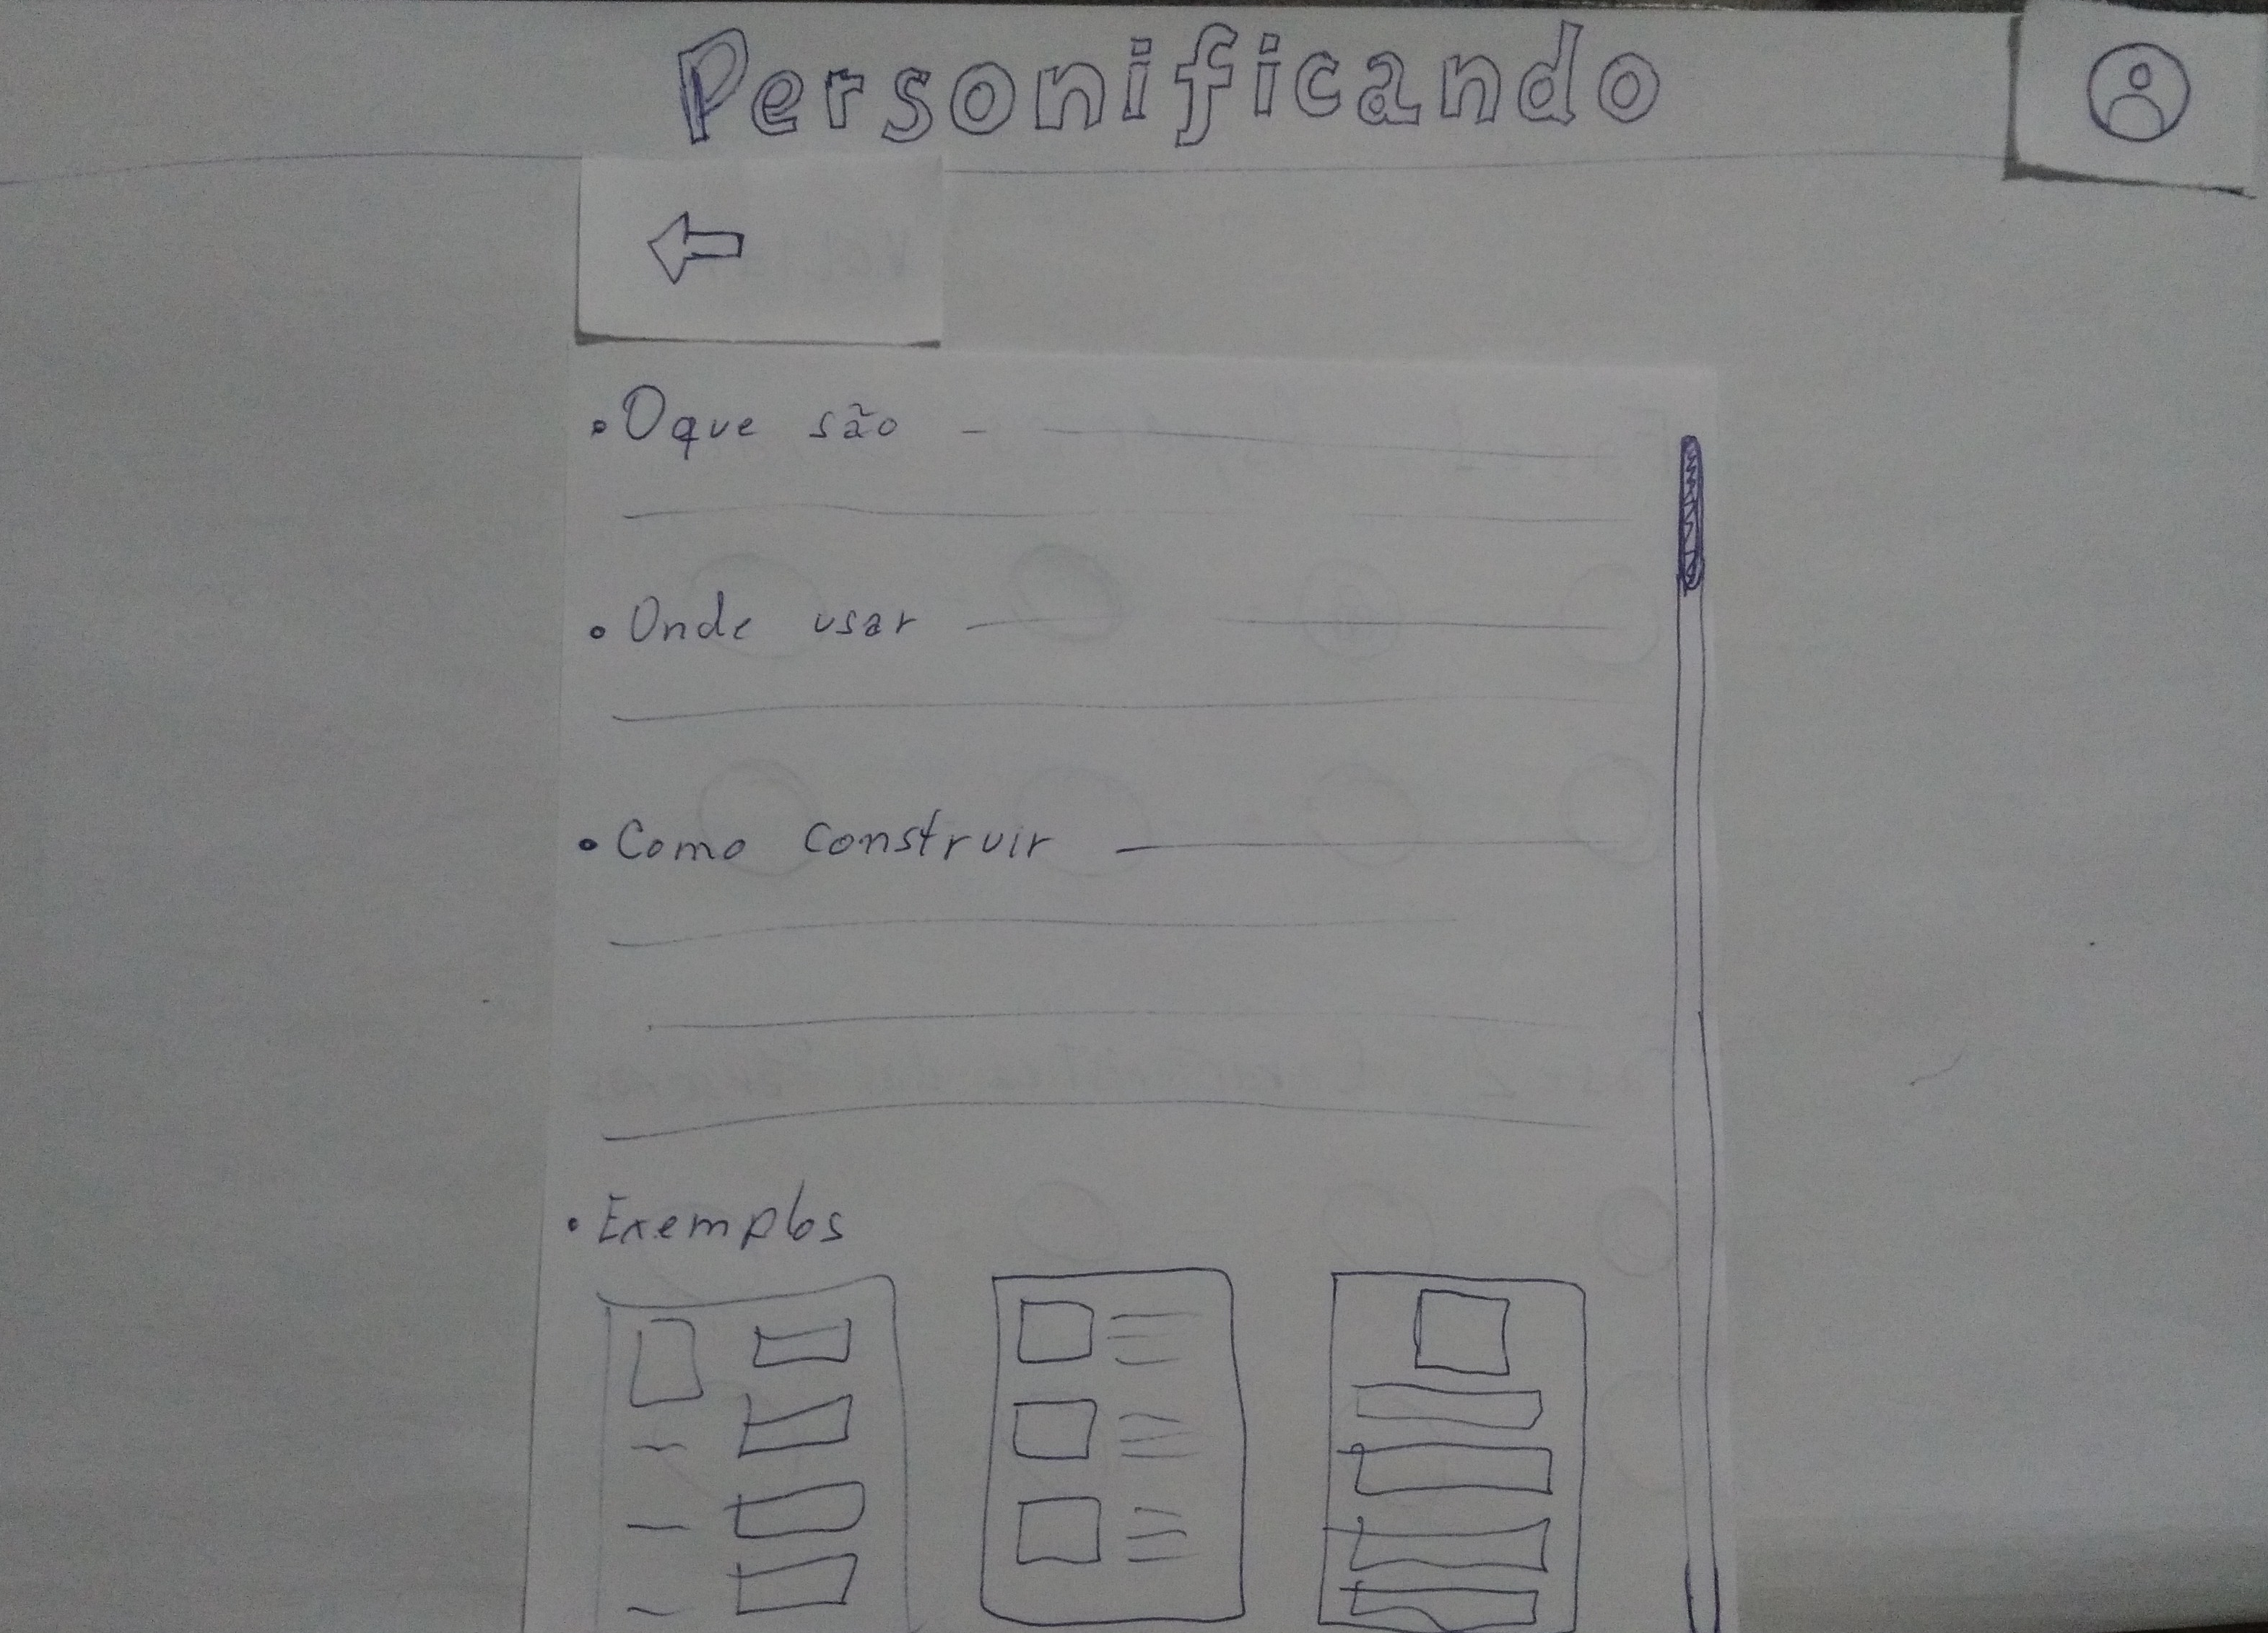 Personificando
• O que são
• Onde usar
• Como construir
• Exemplos